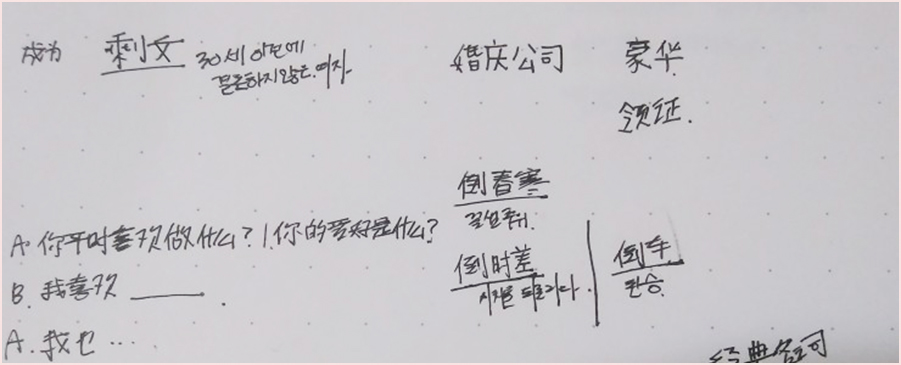 成为 剩女 30세 이전에
결혼하지 않은 여자
婚庆公司 豪华
领证.
倒春寒
꽃샘추위.
A. 你平时喜欢做什么? / 你的爱好是什么?
倒时差 倒车
B. 我喜欢 ______.
환승.
A. 我也 …